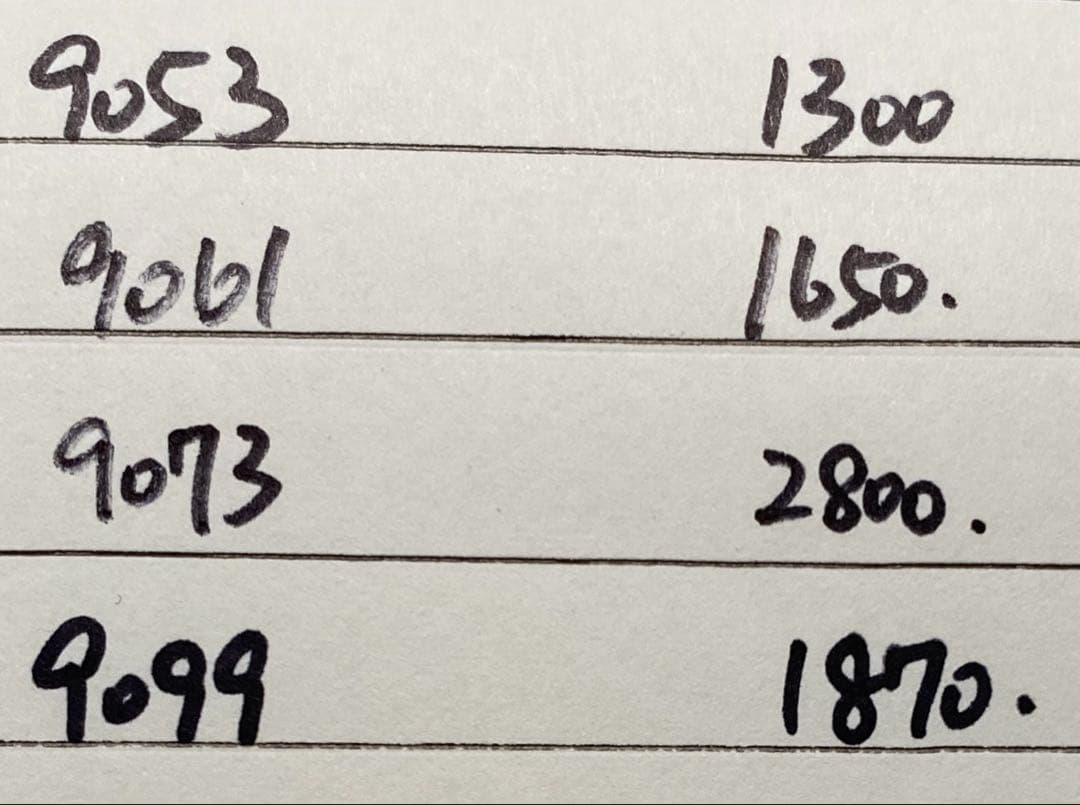 9053 1300
9061 1650.
9073 2800.
9099 1870.